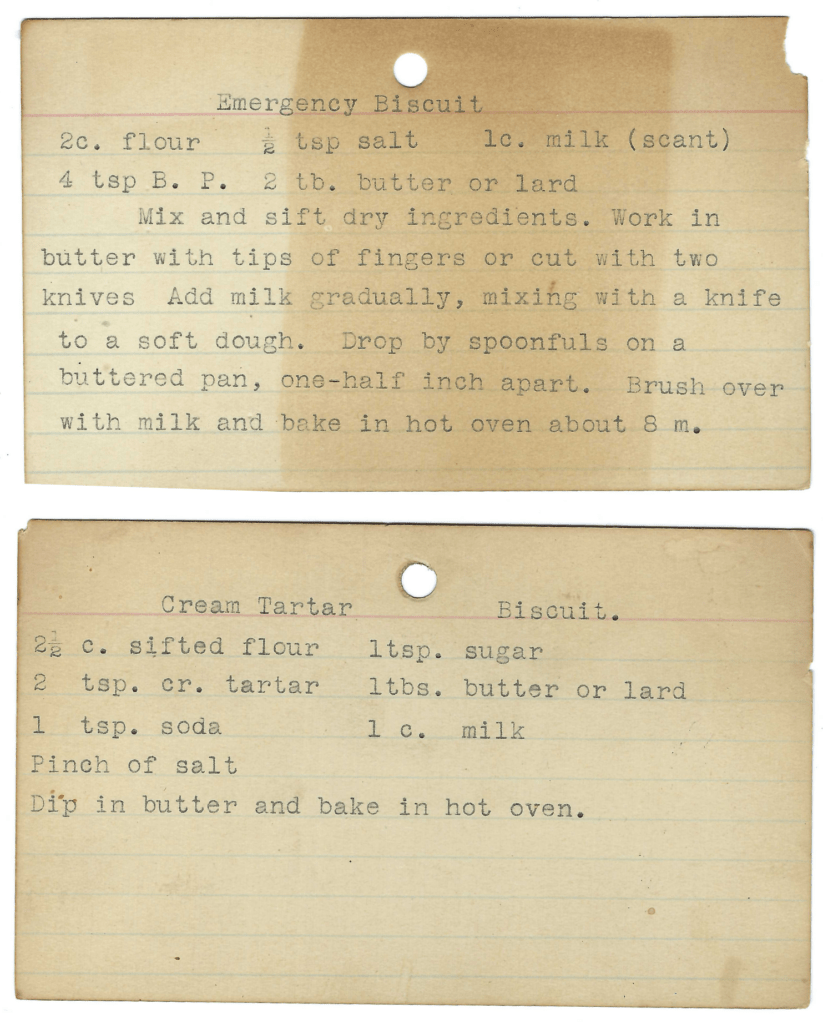 Emergency Biscuit
2c. flour ½ tsp salt 1c. milk (scant)
4 tsp B. P. 2 tb. butter or lard
Mix and sift dry ingredients. Work in
butter with tips of fingers or cut with two
knives Add milk gradually, mixing with a knife
to a soft dough. Drop by spoonfuls on a
buttered pan, one-half inch apart. Brush over
with milk and bake in hot oven about 8 m.
Cream Tartar Biscuit.
2½ c. sifted flour 1tsp. sugar
2 tsp. cr. tartar 1tbs. butter or lard
1 tsp. soda 1 c. milk
Pinch of salt
Dip in butter and bake in hot oven.